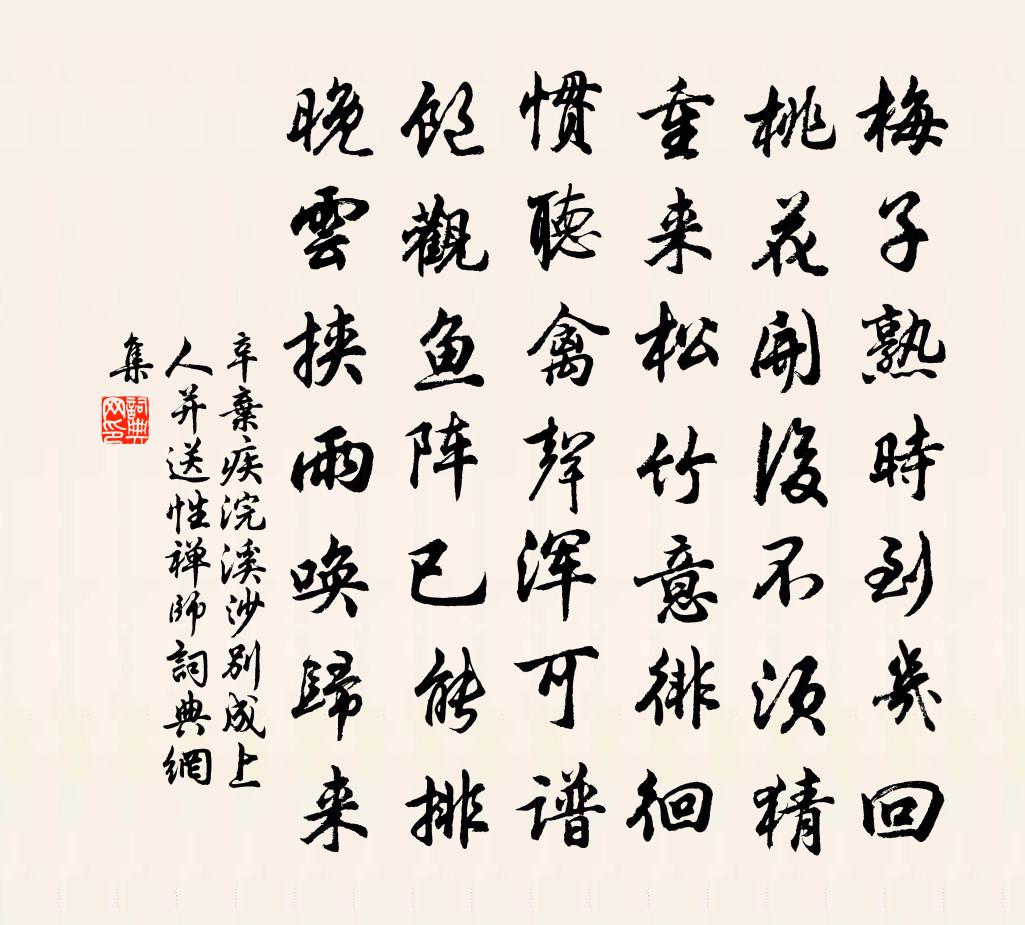 梅子熟時到幾回
桃花開後不須猜
重来松竹意徘徊
慣聽禽聲渾可谱
飽觀鱼阵已能排
晚雲挟雨唤歸来
辛棄疾浣溪沙别成上
人并送性禅師詞典網
集
詞典網印